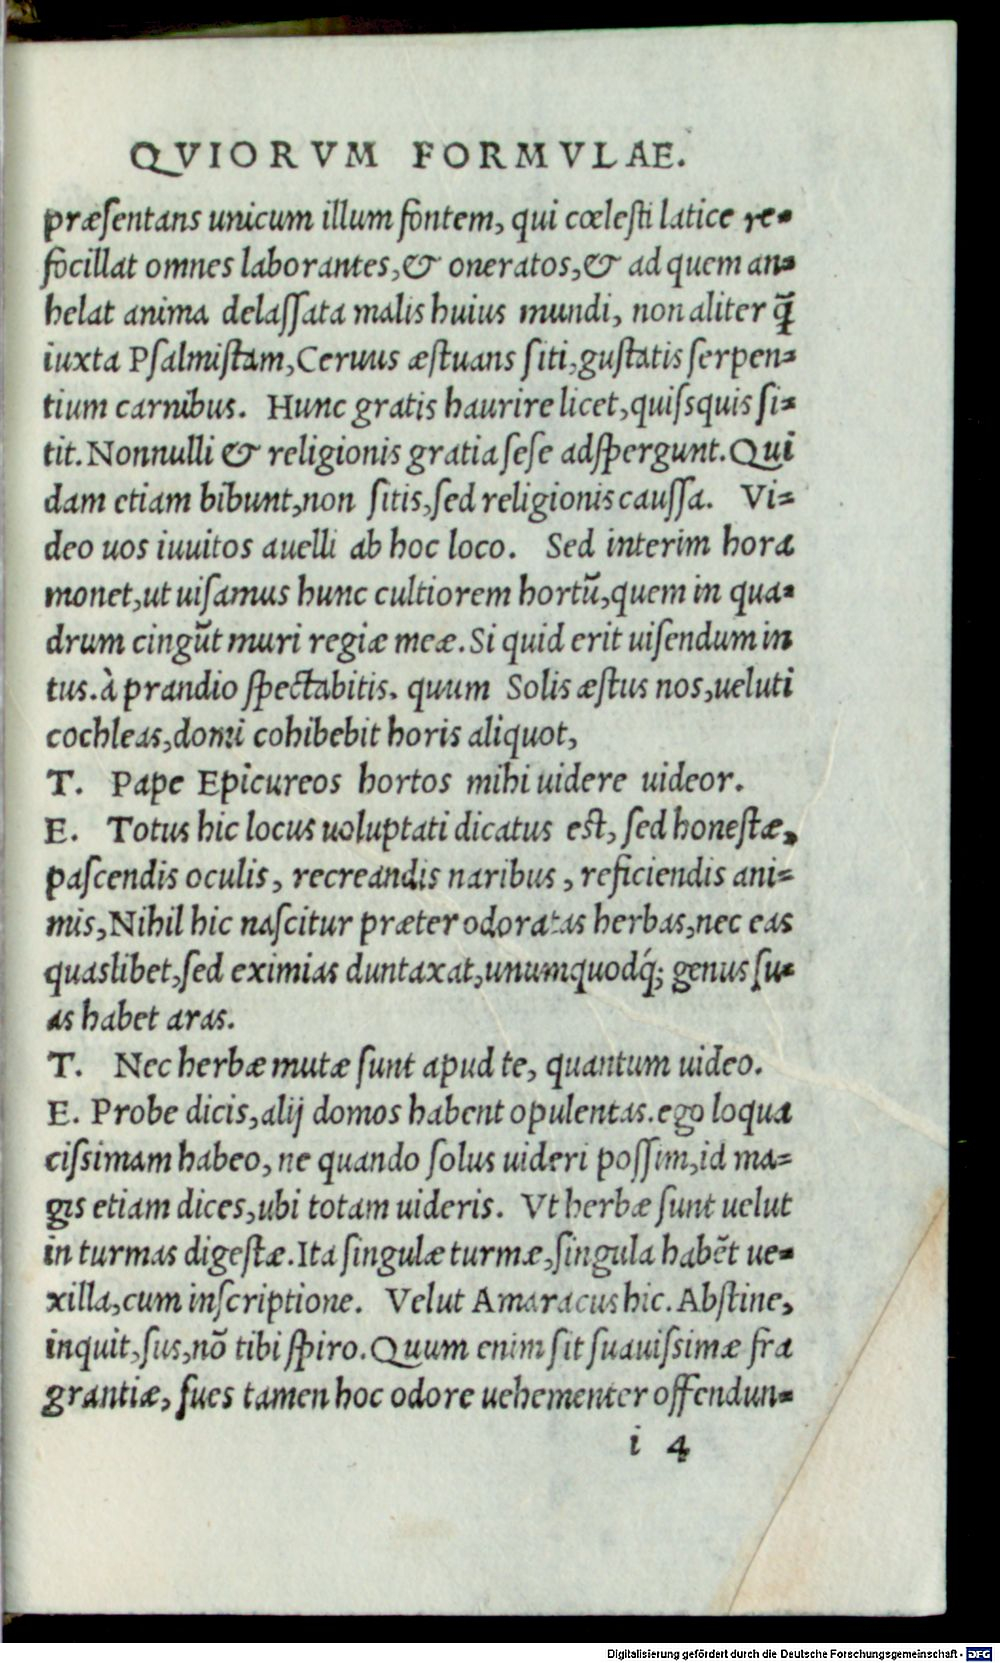 QVIORVM FORMVLAE.
præsentans unicum illum fontem, qui cœlesti latice re-
focillat omnes laborantes,& oneratos,& ad quem an-
helat anima delassata malis huius mundi, non aliter q̃
iuxta Psalmistam,Ceruus æstuans siti,gustatis serpen-
tium carnibus. Hunc gratis haurire licet,quisquis si-
tit.Nonnulli & religionis gratia sese adspergunt.Qui
dam etiam bibunt,non sitis,sed religionis caussa. Vi-
deo uos iuuitos auelli ab hoc loco. Sed interim hora
monet,ut uisamus hunc cultiorem hortũ,quem in qua-
drum cingũt muri regiæ meæ.Si quid erit uisendum in
tus.à prandio spectabitis. quum Solis æstus nos,ueluti
cochleas,domi cohibebit horis aliquot,
T. Pape Epicureos hortos mihi uidere uideor.
E. Totus hic locus uoluptati dicatus est, sed honestæ,
pascendis oculis, recreandis naribus, reficiendis ani-
mis,Nihil hic nascitur præter odoratas herbas,nec eas
quaslibet,sed eximias duntaxat,unumquodq́; genus su-
as habet aras.
T. Nec herbæ mutæ sunt apud te, quantum uideo.
E. Probe dicis,alij domos habent opulentas.ego loqua
cissimam habeo, ne quando solus uideri possim,id ma-
gis etiam dices,ubi totam uideris. Vt herbæ sunt uelut
in turmas digestæ.Ita singulæ turmæ,singula habẽt ue-
xilla,cum inscriptione. Velut Amaracus hic.Abstine,
inquit,sus,nõ tibi spiro.Quum enim sit suauissimæ fra
grantiæ, sues tamen hoc odore uehementer offendun-
i 4
Digitalisierung gefördert durch die Deutsche Forschungsgemeinschaft - DFG